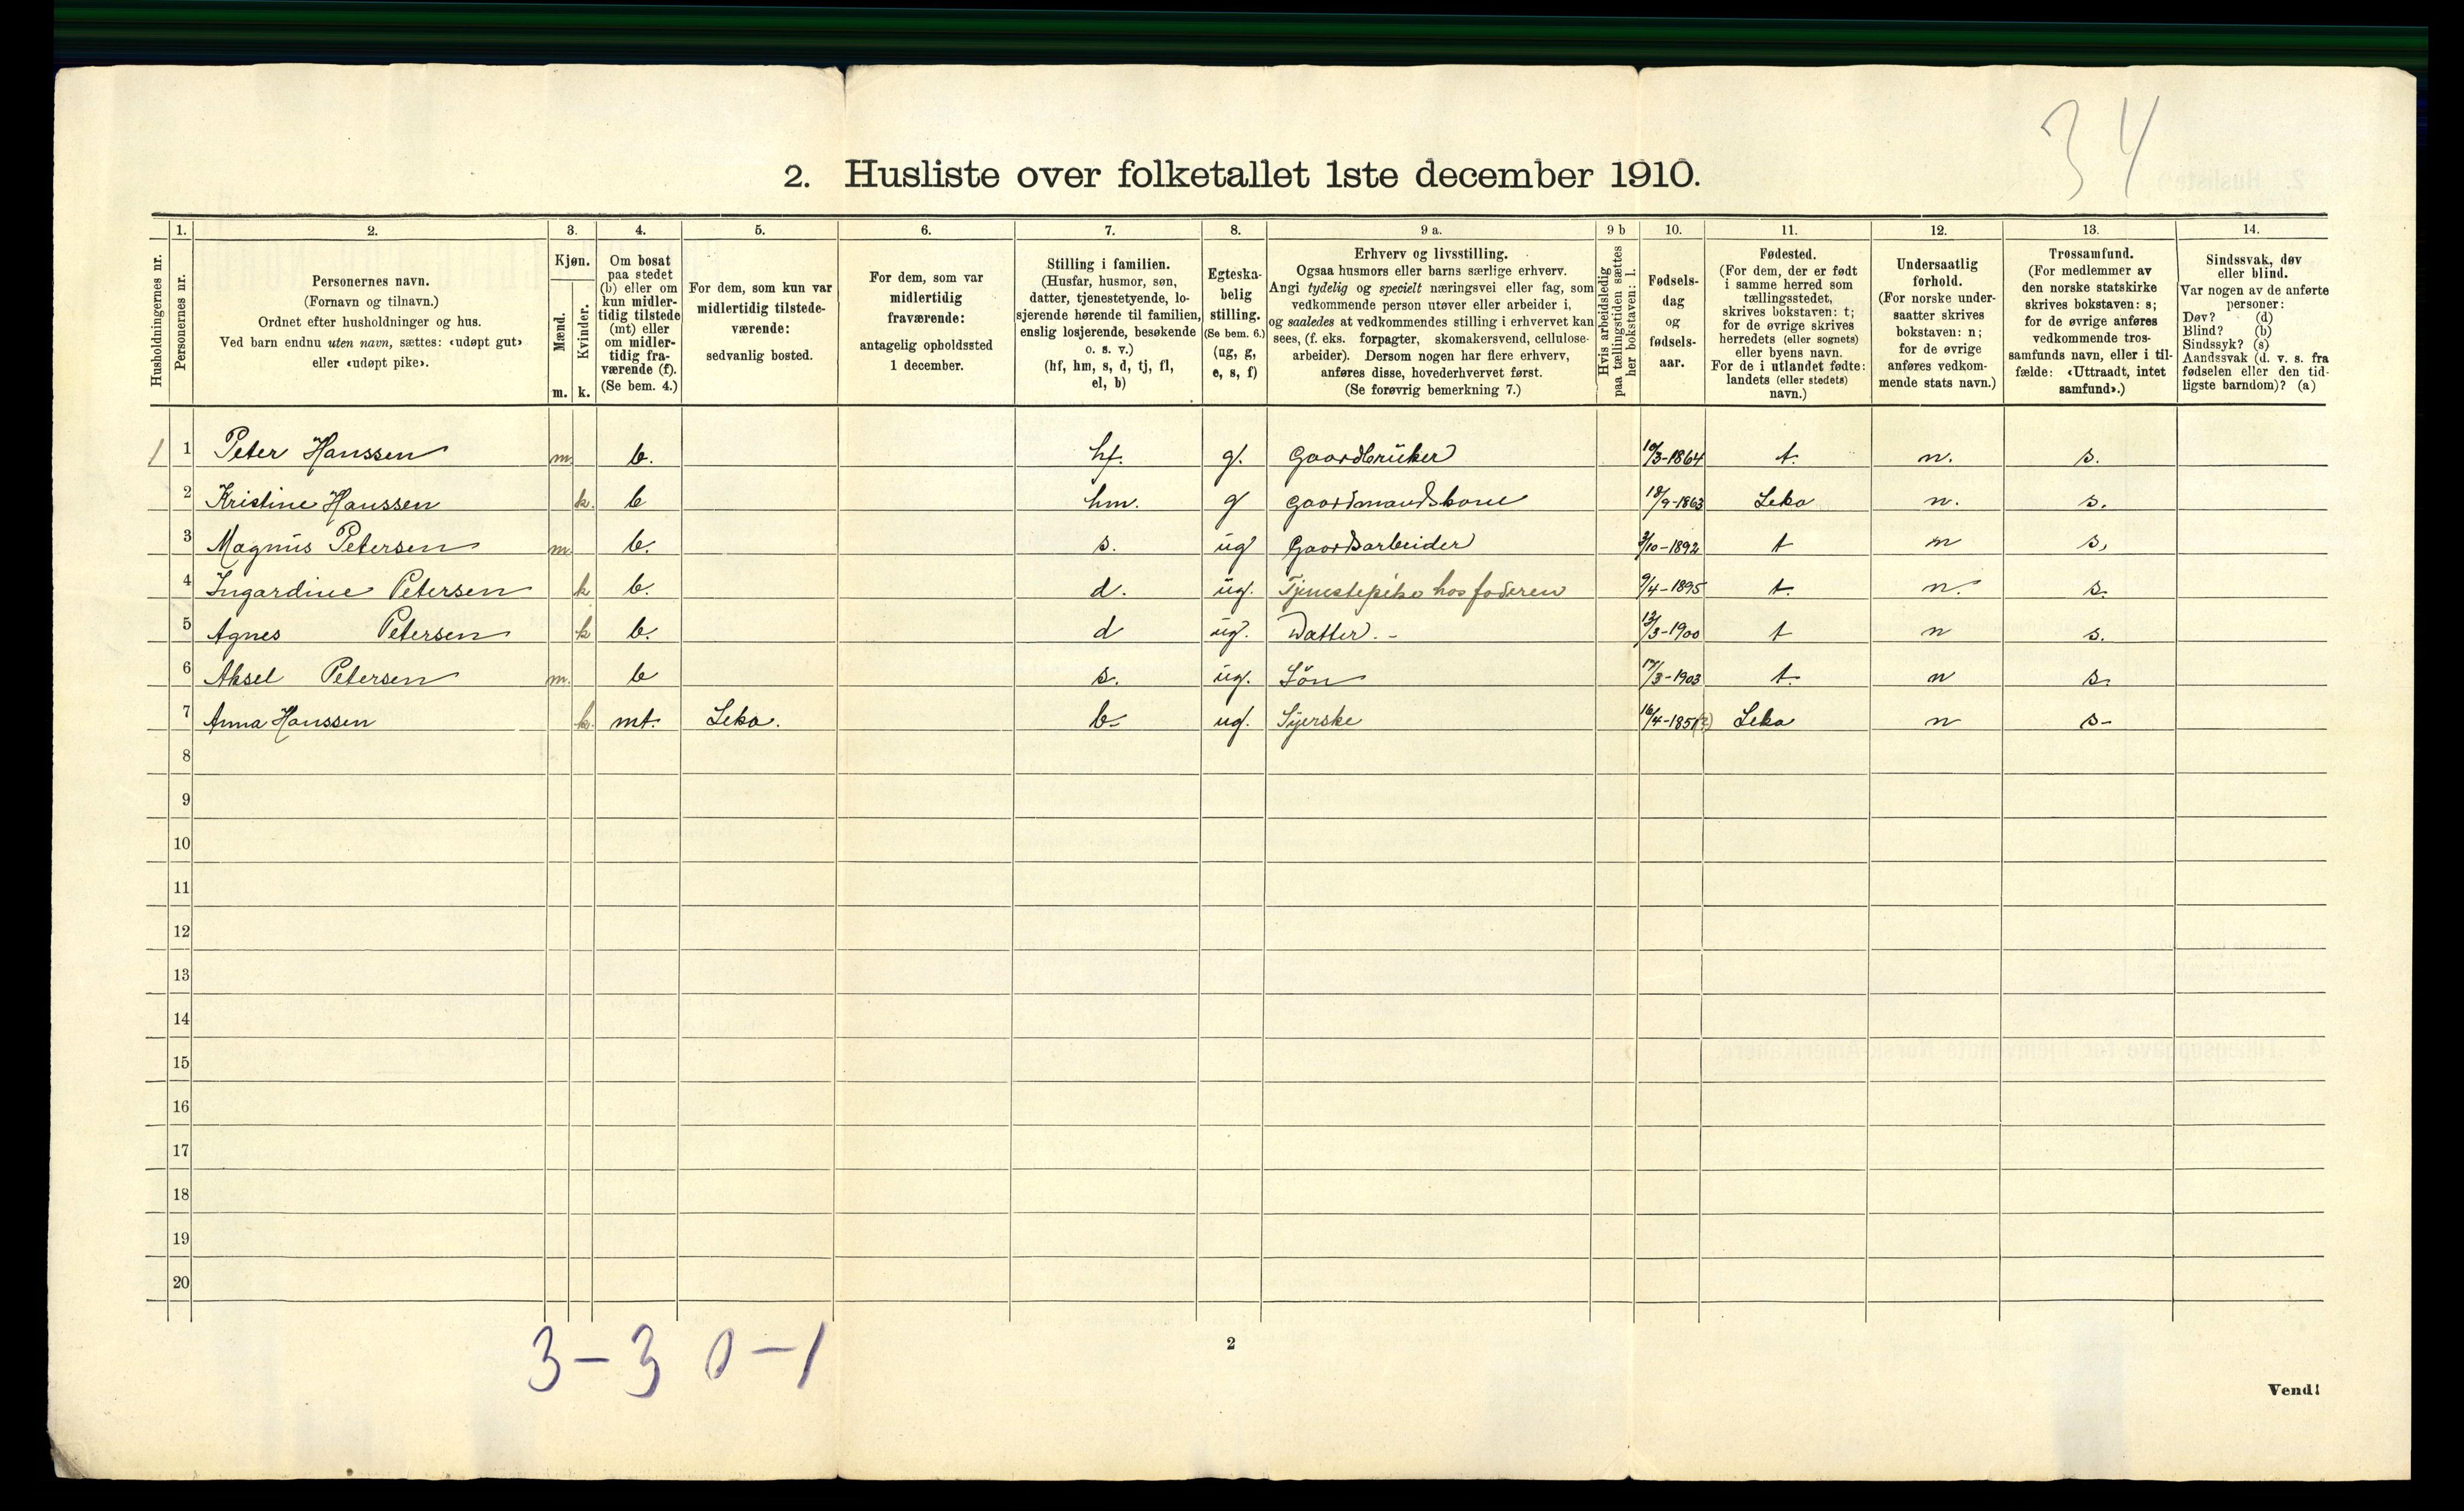 34
2. Husliste over folketallet 1ste december 1910.
Husholdningernes nr.
1.
Personernes nr.
2.
Personernes navn.
(Fornavn og tilnavn.)
Ordnet efter husholdninger og hus.
Ved barn endnu uten navn, sættes: «udøpt gut»
eller «udøpt pike».
3.
Kjøn.
Mænd.
Kvinder.
m. k.
4.
Om bosat
paa stedet
(b) eller om
kun midler-
tidig tilstede
(mt) eller
om midler-
tidig fra-
værende (f).
(Se bem. 4.)
5.
For dem, som kun var
midlertidig tilstede-
værende:
sedvanlig bosted.
6.
For dem, som var
midlertidig
fraværende:
antagelig opholdssted
1 december.
7.
Stilling i familien.
(Husfar, husmor, søn,
datter, tjenestetyende, lo-
sjerende hørende til familien,
enslig losjerende, besøkende
o. s. v.)
(hf, hm, s, d, tj, fl,
el, b)
8.
Egteska-
belig
stilling.
(Se bem. 6.)
(ug, g,
e, s, f)
9 a.
Erhverv og livsstilling.
Ogsaa husmors eller barns særlige erhverv.
Angi tydelig og specielt næringsvei eller fag, som
vedkommende person utøver eller arbeider i,
og saaledes at vedkommendes stilling i erhvervet kan
sees, (f. eks. forpagter, skomakersvend, cellulose-
arbeider). Dersom nogen har flere erhverv,
anføres disse, hovederhvervet først.
(Se forøvrig bemerkning 7.)
9 b
Hvis arbeidsledig
paa tællingstiden sættes
her bokstaven: l.
10.
Fødsels-
dag
og
fødsels-
aar.
11.
Fødested.
(For dem, der er født
i samme herred som
tællingsstedet,
skrives bokstaven: t;
for de øvrige skrives
herredets (eller sognets)
eller byens navn.
For de i utlandet fødte:
landets (eller stedets)
navn.)
12.
Undersaatlig
forhold.
(For norske under-
saatter skrives
bokstaven: n;
for de øvrige
anføres vedkom-
mende stats navn.)
13.
Trossamfund.
(For medlemmer av
den norske statskirke
skrives bokstaven: s;
for de øvrige anføres
vedkommende tros-
samfunds navn, eller i til-
fælde: «Uttraadt, intet
samfund».)
14.
Sindssvak, døv
eller blind.
Var nogen av de anførte
personer:
Døv? (d)
Blind? (b)
Sindssyk? (s)
Aandssvak (d. v. s. fra
fødselen eller den tid-
ligste barndom)? (a)
1 1 Peter Hanssen m. b. hf. g. Gaardbrüker 10/3-1864 t. n. s.
2 Kristine Hanssen k. b hm. g Gaardmandskone 18/9-1863 Leka n. s.
3 Magnüs Petersen m. b. s. üg Gaardsarbeider 3/10-1892 t n s.
4 Ingardine Petersen k b. d. üg. Tjenestepike hos faderen 9/4-1895 t. n. s.
5 Agnes Petersen k b. d üg. Datter. - 13/3-1900 t n s.
6 Aksel Petersen m. b s. üg. Sön 17/3-1903 t. n s.
7 Anna Hanssen k. mt. Leka. b. ug. Syerske 16/4-1851(?) Leka n s-
8
9
10
11
12
13
14
15
16
17
18
19
20
3 - 3 0 - 1
2
Vend!